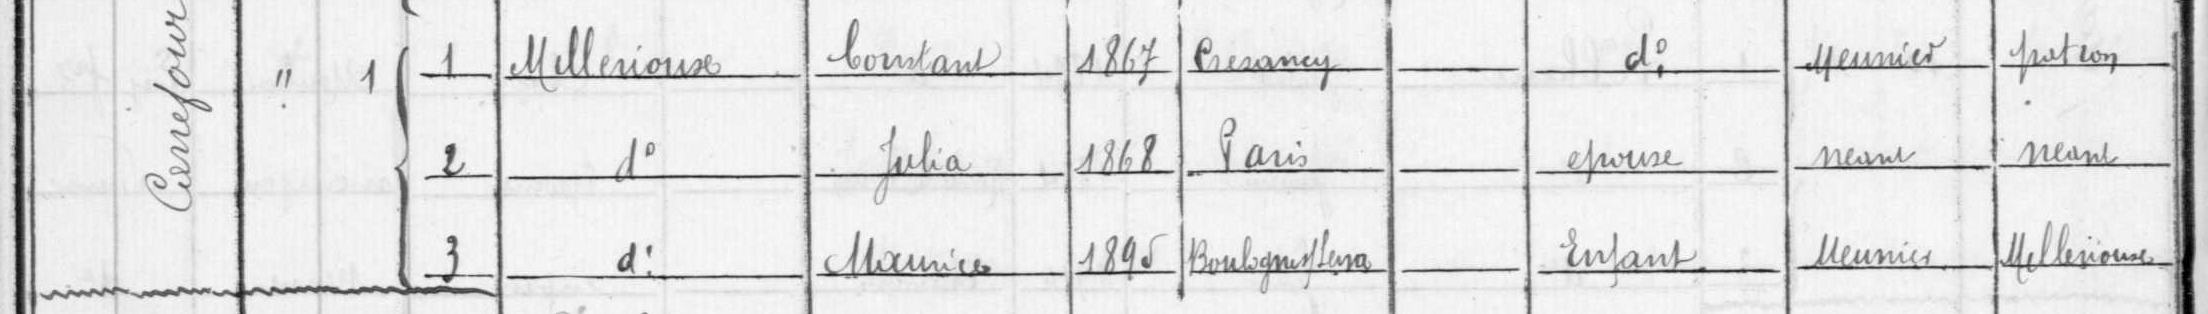 " 1 1 Millerioux Constant 1867 Crésancy d° Meunier patron
2 d° Julia 1868 Paris epouse neant neant
3 d° Maurice 1895 Enfant Meunier Millerioux